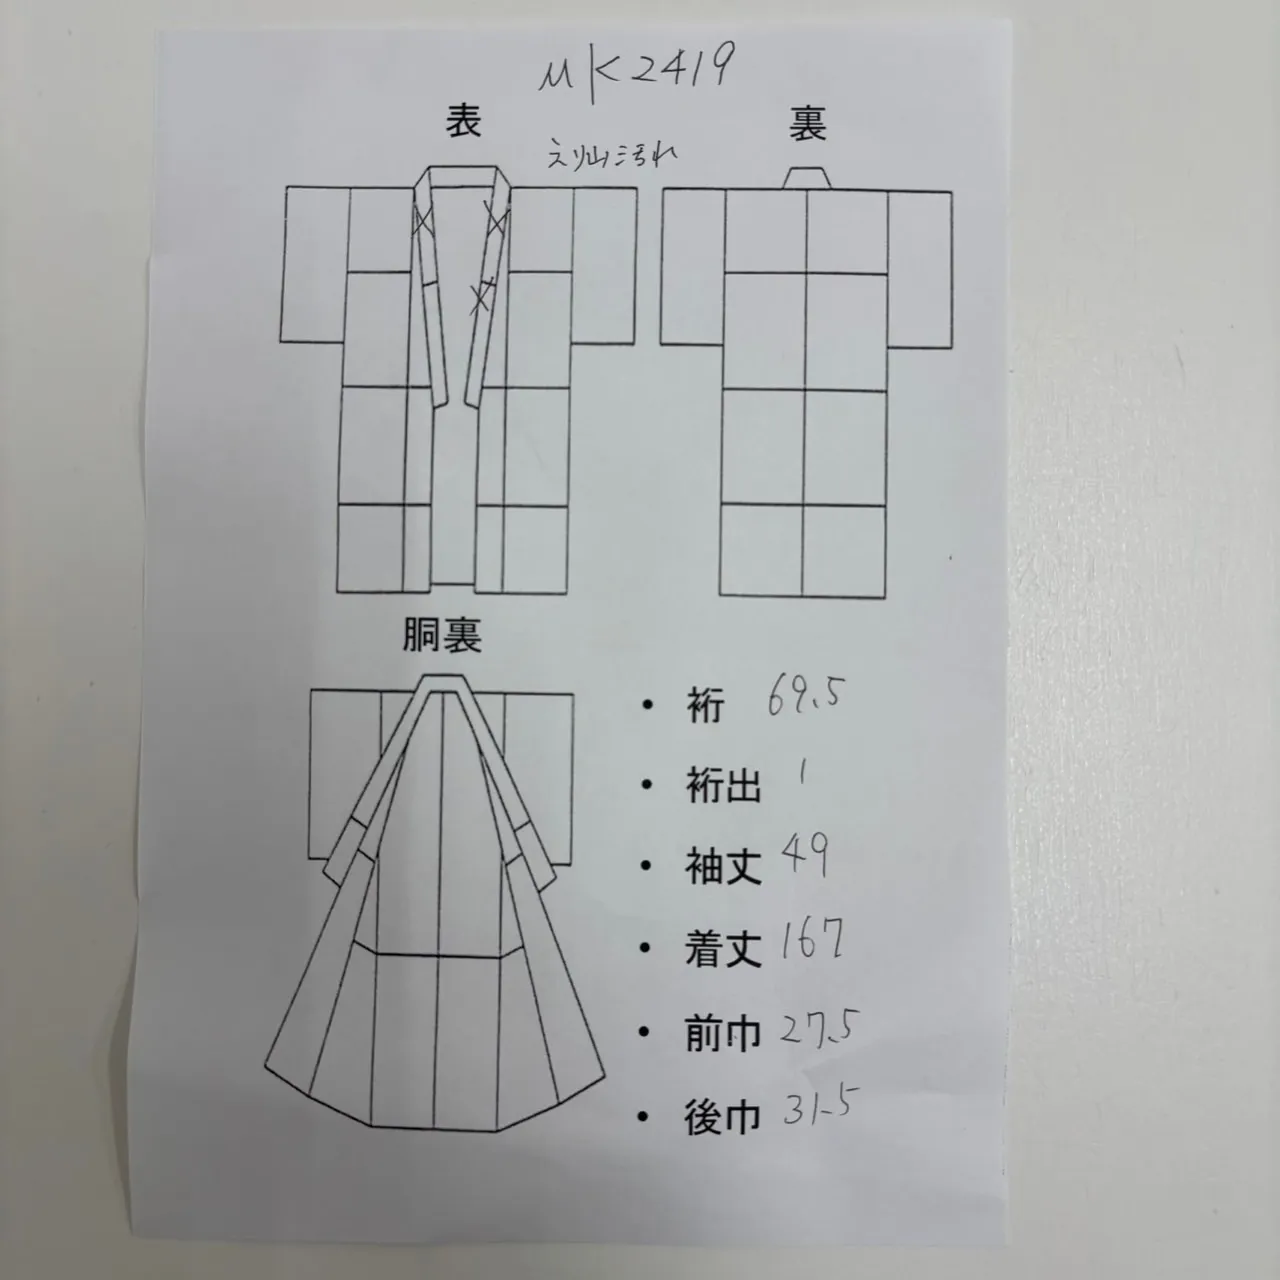 MK2419
表
裏
えり山汚れ
胴裏
・裄 69.5
・裄出 1
・袖丈 49
・着丈 167
・前巾 27.5
・後巾 31.5